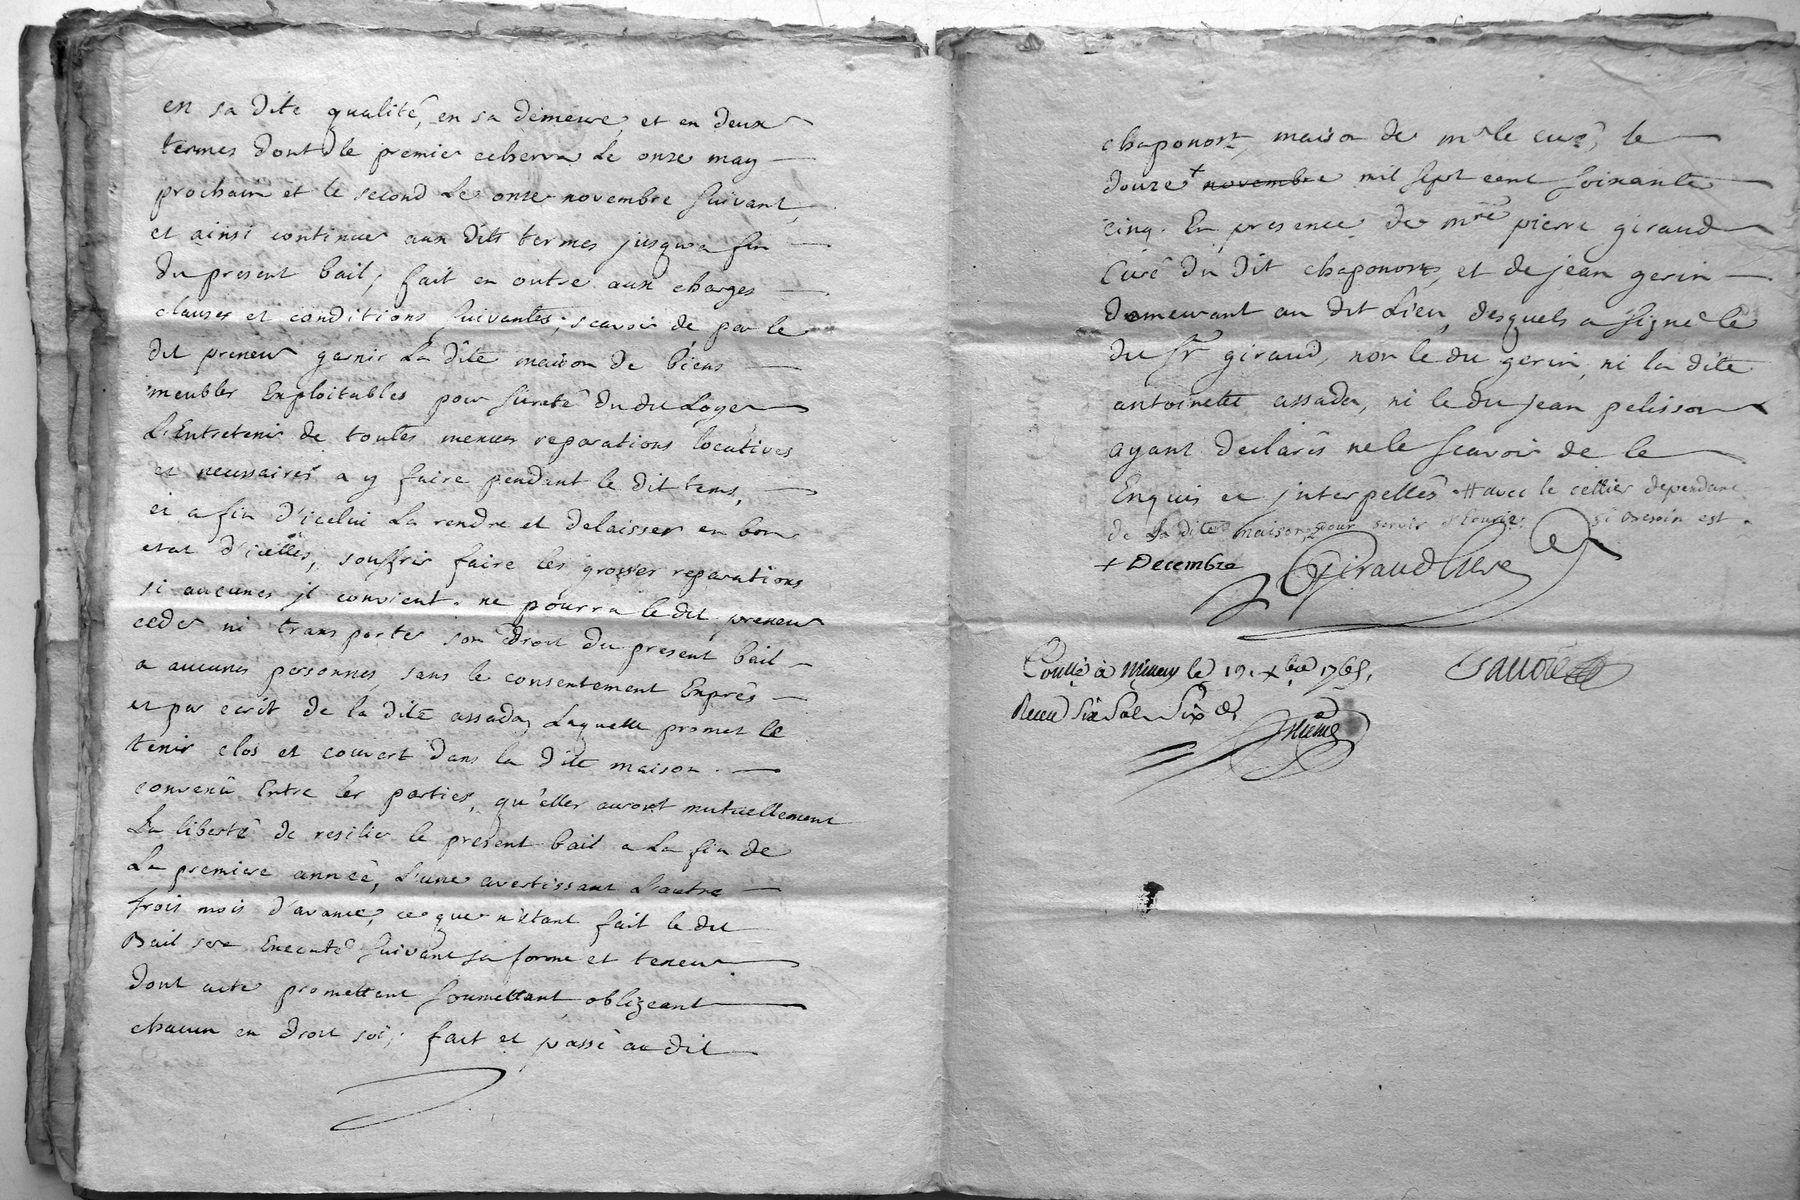 en sa dite qualité, en sa demeure, et en deux
termes dont le premier echerra Le onze may
prochain et le second Le onze novembre suivant,
et ainsi continuer aux dits termes jusqu'a fin
du present bail; fait en outre aux charges
clauses et conditions suivantes; scavoir de par le
dit preneur garnir La dite maison de biens
meubles Exploitables pour sureté du du Loyer
L'Entretenir de toutes menues reparations locatives
et necessaires a y faire pendant le dit tems,
et a fin d'icelui La rendre et delaisser en bon
etat d'icelles, souffrir faire les grosses reparations
si aucunes jl convient. ne pourra le dit preneur
ceder ni transporter son Droit du present bail
a aucunes personnes sans le consentement Exprès
et par ecrit de la dite assada, Laquelle promet le
tenir clos et couvert dans la dite maison.
convenû Entre les parties, qu'elles auront mutuellement
La liberté de resilier le present bail a La fin de
La premiere année, L'une avertissant L'autre
trois mois d'avance, ce que n'etant fait le dit
Bail sera Executé suivant sa forme et teneur
dont acte promettant soumettant obligeant
chacun en droit soi; fait et passé au dit
chaponost, maison de mr le curé, le
douze + novembre mil sept cent soixante
cinq. En presence de mre pierre giraud
Curé du dit chaponost, et de jean gerin
demeurant au dit Lieu, desquels a signé le
du sr giraud, non le du gerin, ni la dite
antoinette assada, ni le du jean pelisson
ayant declarés ne le scavoir de ce
Enquis et jnterpellés. # avec le cellier dependant
de La dite maison, pour servir d'ecurie si besoin est.
+ Decembre Giraud Curé
Conllé à Millery le 19. xbre 1765.
Recu six sols six ds